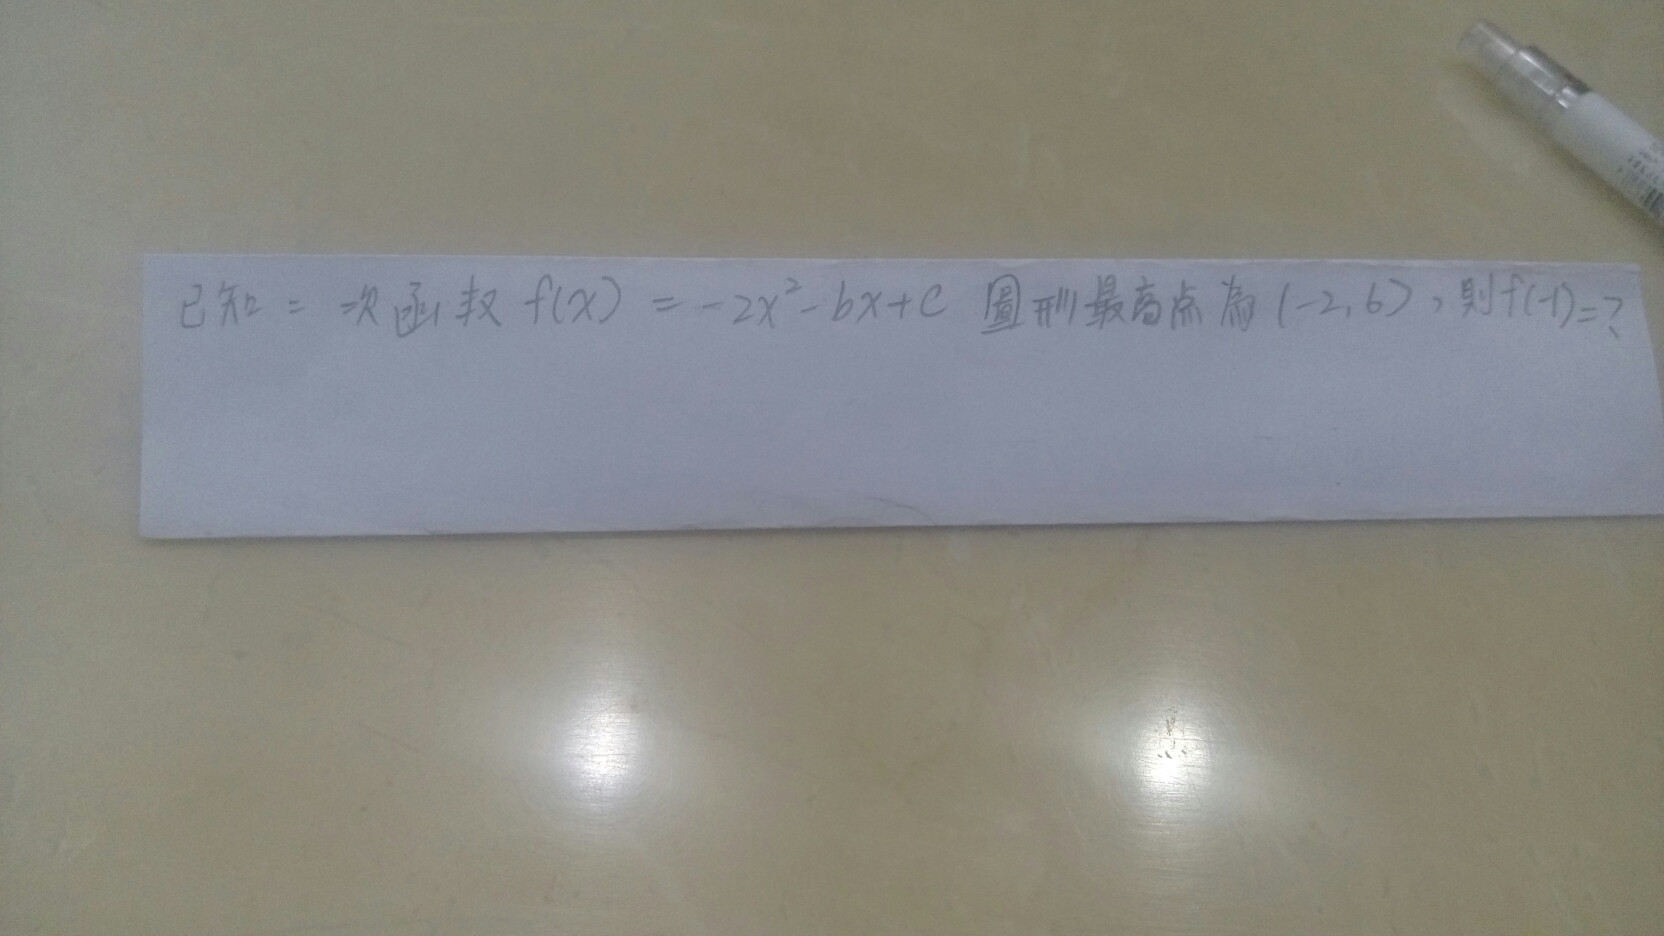 已知二次函数 f(x) = -2x²-bx+c 圖形最高点為(-2,6)，則f(-1)=?